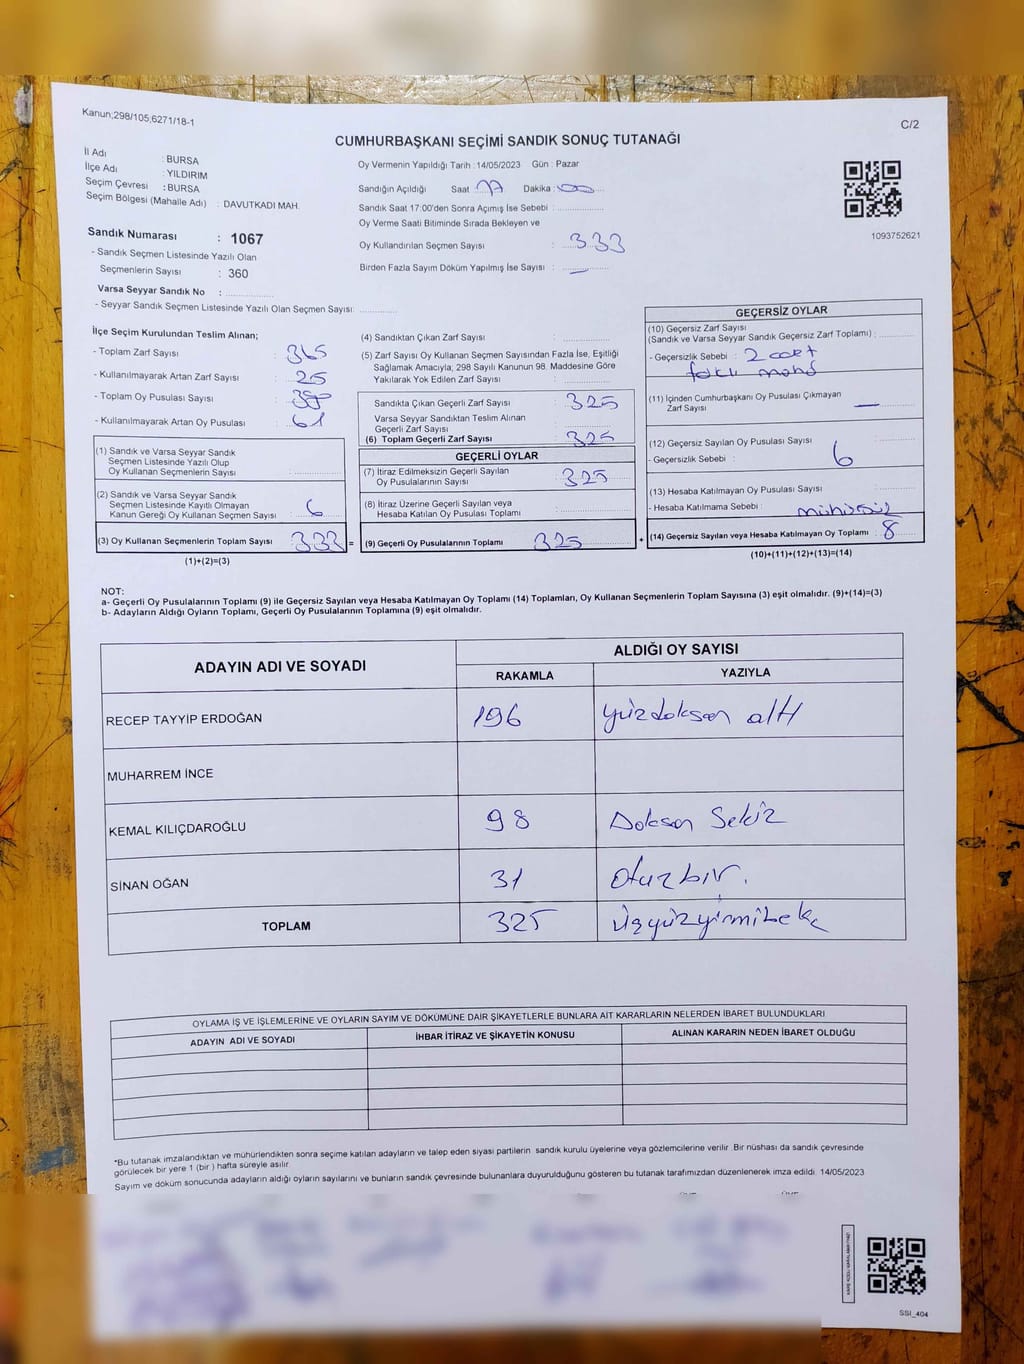 Kanun;298/105;6271/18-1
C/2
CUMHURBAŞKANI SEÇİMİ SANDIK SONUÇ TUTANAĞI
İl Adı : BURSA
İlçe Adı : YILDIRIM
Seçim Çevresi : BURSA
Seçim Bölgesi (Mahalle Adı) : DAVUTKADI MAH.
Oy Vermenin Yapıldığı Tarih : 14/05/2023 Gün : Pazar
Sandığın Açıldığı Saat 17 Dakika : 00
Sandık Saat 17:00'den Sonra Açımış İse Sebebi :
Oy Verme Saati Bitiminde Sırada Bekleyen ve
Oy Kullandırılan Seçmen Sayısı : 333
Birden Fazla Sayım Döküm Yapılmış İse Sayısı : —
1093752621
Sandık Numarası : 1067
- Sandık Seçmen Listesinde Yazılı Olan
Seçmenlerin Sayısı : 360
Varsa Seyyar Sandık No :
- Seyyar Sandık Seçmen Listesinde Yazılı Olan Seçmen Sayısı:
İlçe Seçim Kurulundan Teslim Alınan;
- Toplam Zarf Sayısı : 365
- Kullanılmayarak Artan Zarf Sayısı : 25
- Toplam Oy Pusulası Sayısı :
- Kullanılmayarak Artan Oy Pusulası : 61
(1) Sandık ve Varsa Seyyar Sandık
Seçmen Listesinde Yazılı Olup
Oy Kullanan Seçmenlerin Sayısı :
(2) Sandık ve Varsa Seyyar Sandık
Seçmen Listesinde Kayıtlı Olmayan
Kanun Gereği Oy Kullanan Seçmen Sayısı : 6
(3) Oy Kullanan Seçmenlerin Toplam Sayısı : 333 =
(1)+(2)=(3)
(4) Sandıktan Çıkan Zarf Sayısı :
(5) Zarf Sayısı Oy Kullanan Seçmen Sayısından Fazla İse, Eşitliği
Sağlamak Amacıyla, 298 Sayılı Kanunun 98. Maddesine Göre
Yakılarak Yok Edilen Zarf Sayısı :
Sandıkta Çıkan Geçerli Zarf Sayısı : 325
Varsa Seyyar Sandıktan Teslim Alınan
Geçerli Zarf Sayısı :
(6) Toplam Geçerli Zarf Sayısı : 325
GEÇERLİ OYLAR
(7) İtiraz Edilmeksizin Geçerli Sayılan
Oy Pusulalarının Sayısı : 325
(8) İtiraz Üzerine Geçerli Sayılan veya
Hesaba Katılan Oy Pusulası Toplamı :
(9) Geçerli Oy Pusulalarının Toplamı : 325 +
GEÇERSİZ OYLAR
(10) Geçersiz Zarf Sayısı
(Sandık ve Varsa Seyyar Sandık Geçersiz Zarf Toplamı) :
- Geçersizlik Sebebi : 2 adet
(11) İçinden Cumhurbaşkanı Oy Pusulası Çıkmayan
Zarf Sayısı : —
(12) Geçersiz Sayılan Oy Pusulası Sayısı :
- Geçersizlik Sebebi : 6
(13) Hesaba Katılmayan Oy Pusulası Sayısı :
- Hesaba Katılmama Sebebi : mühürsüz
(14) Geçersiz Sayılan veya Hesaba Katılmayan Oy Toplamı : 8
(10)+(11)+(12)+(13)=(14)
NOT:
a- Geçerli Oy Pusulalarının Toplamı (9) ile Geçersiz Sayılan veya Hesaba Katılmayan Oy Toplamı (14) Toplamları, Oy Kullanan Seçmenlerin Toplam Sayısına (3) eşit olmalıdır. (9)+(14)=(3)
b- Adayların Aldığı Oyların Toplamı, Geçerli Oy Pusulalarının Toplamına (9) eşit olmalıdır.
ADAYIN ADI VE SOYADI ALDIĞI OY SAYISI
RAKAMLA YAZIYLA
RECEP TAYYİP ERDOĞAN 196 yüzdoksan altı
MUHARREM İNCE
KEMAL KILIÇDAROĞLU 98 Doksan Sekiz
SİNAN OĞAN 31 otuzbir.
TOPLAM 325 üçyüzyirmibeş
OYLAMA İŞ VE İŞLEMLERİNE VE OYLARIN SAYIM VE DÖKÜMÜNE DAİR ŞİKAYETLERLE BUNLARA AİT KARARLARIN NELERDEN İBARET BULUNDUKLARI
ADAYIN ADI VE SOYADI İHBAR İTİRAZ VE ŞİKAYETİN KONUSU ALINAN KARARIN NEDEN İBARET OLDUĞU
*Bu tutanak imzalandıktan ve mühürlendikten sonra seçime katılan adayların ve talep eden siyasi partilerin sandık kurulu üyelerine veya gözlemcilerine verilir. Bir nüshası da sandık çevresinde
görülecek bir yere 1 (bir) hafta süreyle asılır.
Sayım ve döküm sonucunda adayların aldığı oyların sayılarını ve bunların sandık çevresinde bulunanlara duyurulduğunu gösteren bu tutanak tarafımızdan düzenlenerek imza edildi. 14/05/2023
SSI_404